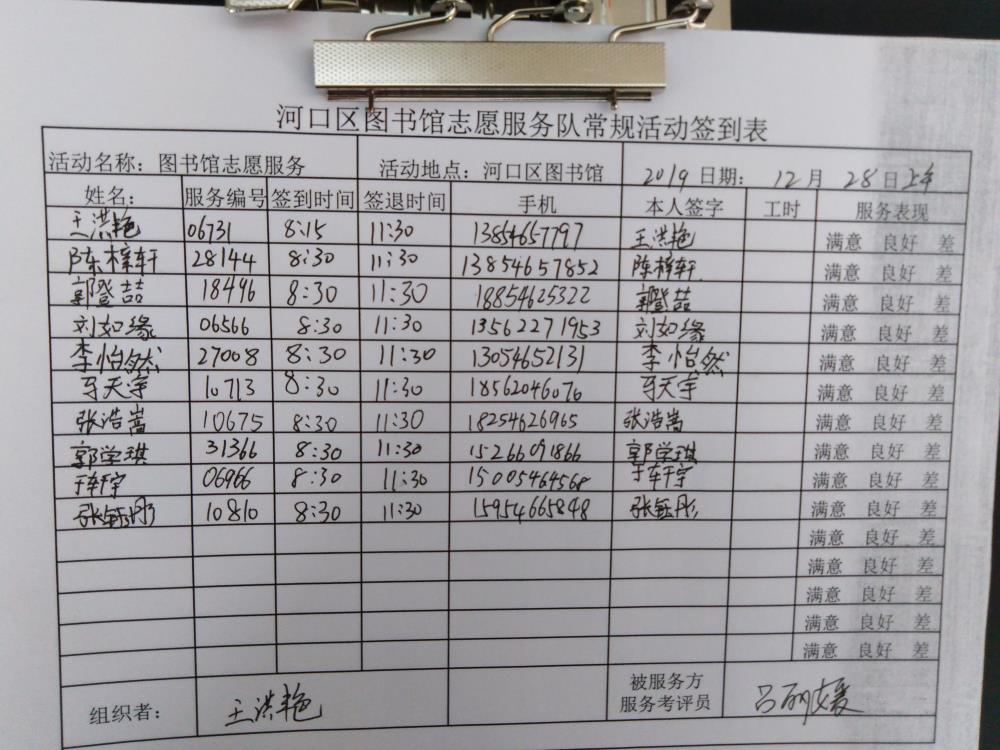 河口区图书馆志愿服务队常规活动签到表
活动名称：图书馆志愿服务 活动地点：河口区图书馆 2019 日期： 12 月 28 日上午
姓名： 服务编号 签到时间 签退时间 手机 本人签字 工时 服务表现
王洪艳 06731 8:15 11:30 13854657797 王洪艳 满意 良好 差
陈梓轩 28144 8:30 11:30 13854657852 陈梓轩 满意 良好 差
郭登喆 18496 8:30 11:30 18854625322 郭登喆 满意 良好 差
刘如缘 06566 8:30 11:30 13562271953 刘如缘 满意 良好 差
李怡然 27008 8:30 11:30 13054652131 李怡然 满意 良好 差
马天宇 10713 8:30 11:30 18562046076 马天宇 满意 良好 差
张浩嵩 10675 8:30 11:30 18254626965 张浩嵩 满意 良好 差
郭学琪 31366 8:30 11:30 15266091866 郭学琪 满意 良好 差
于轩宇 06966 8:30 11:30 15005464568 于轩宇 满意 良好 差
张钰彤 10810 8:30 11:30 15954665848 张钰彤 满意 良好 差
满意 良好 差
满意 良好 差
满意 良好 差
满意 良好 差
满意 良好 差
组织者： 王洪艳 被服务方
服务考评员 吕丽媛